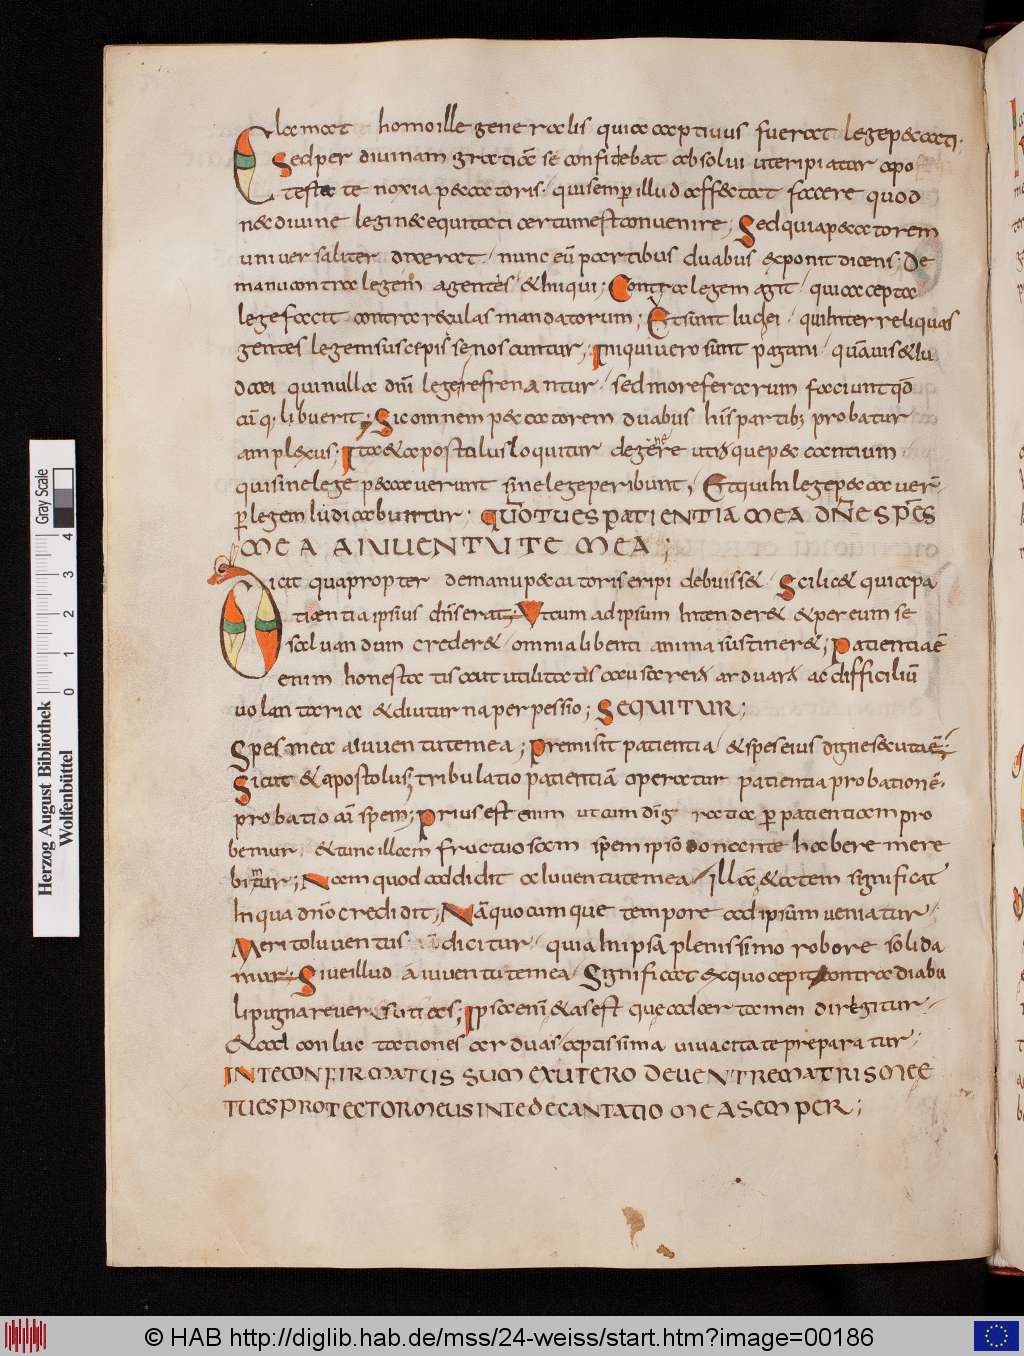 Clamat homo ille generalis quia captivus fuerat lege peccati.
Sed per divinam gratiā se confidebat absolui ut eripiatur apo
testate noxia peccatoris. qui semp illud affectat facere quod
nec divine legi nec equitati certum est convenire; Sed quia peccatorem
universaliter dixerat. nunc eū partibus duabus exponit dicens; De
manu contra legem agentes & iniqui; Contra legem agit. qui accepta
lege facit contra regulas mandatorum; Et sunt ludei. qui inter reliquas
gentes legem suscepisse noscuntur; Iniqui vero sunt pagani. quāuis & lu
daei qui nulla dn̄i lege refrenantur. sed more ferarum faciunt qd̄
cū q; libuerit; Sic omnem peccatorem duabus his partib; probatur
amplexus; Ita & apostolus loquitur de genere utriusque peccantium
qui sine lege peccaverunt sine lege peribunt; Et qui in lege peccaver̄
p legem iudicabuntur; QUO TU ES PATIENTIA MEA DNE SPES
MEA A IUVENTUTE MEA;
Dicit quapropter de manu peccatoris eripi debuisse. Scilicet quia pa
tientia ipsius dn̄s erat; Utcum ad ipsum intenderet & per eum se
salvandum crederet omnia libenti anima sustineret; Patientia ē
enim honestatis aut utilitatis causa rerū arduarū ac difficiliū
voluntaria & diuturna perpessio; SEQUITUR;
Spes mea a iuventute mea; Premisit patientia & spes eius digne secuta ē;
Sicut & apostolus; tribulatio patientiā operatur patientia probationē.
probatio aū spem; Prius est enim ut cum dn̄i gratia p patientiam pro
bemur. & tunc illam fructuosam spem ipso donante habere mere
bimur; Nam quod addidit a luventute mea. Illā ætatem significat
In qua dn̄o credidit; Nā quocumque tempore ad ipsum veniatur.
Merito luventus dicitur. quia in ipsa plenissimo robore solida
mur; Sive illud a iuventute mea. Significat ex quo cepit contra diabu
li pugna reversutias; Ipsa enī ætas est que ad cer tamen dirigitur.
& ad conluctationes arduas aptissima vivacitate preparatur.
IN TE CONFIRMATUS SUM EX UTERO DE VENTRE MATRIS MEE
TU ES PROTECTOR MEUS IN TE DECANTATIO MEA SEMPER;
Herzog August Bibliothek
Wolfenbüttel
0 1 2 3 4
Gray Scale
© HAB http://diglib.hab.de/mss/24-weiss/start.htm?image=00186